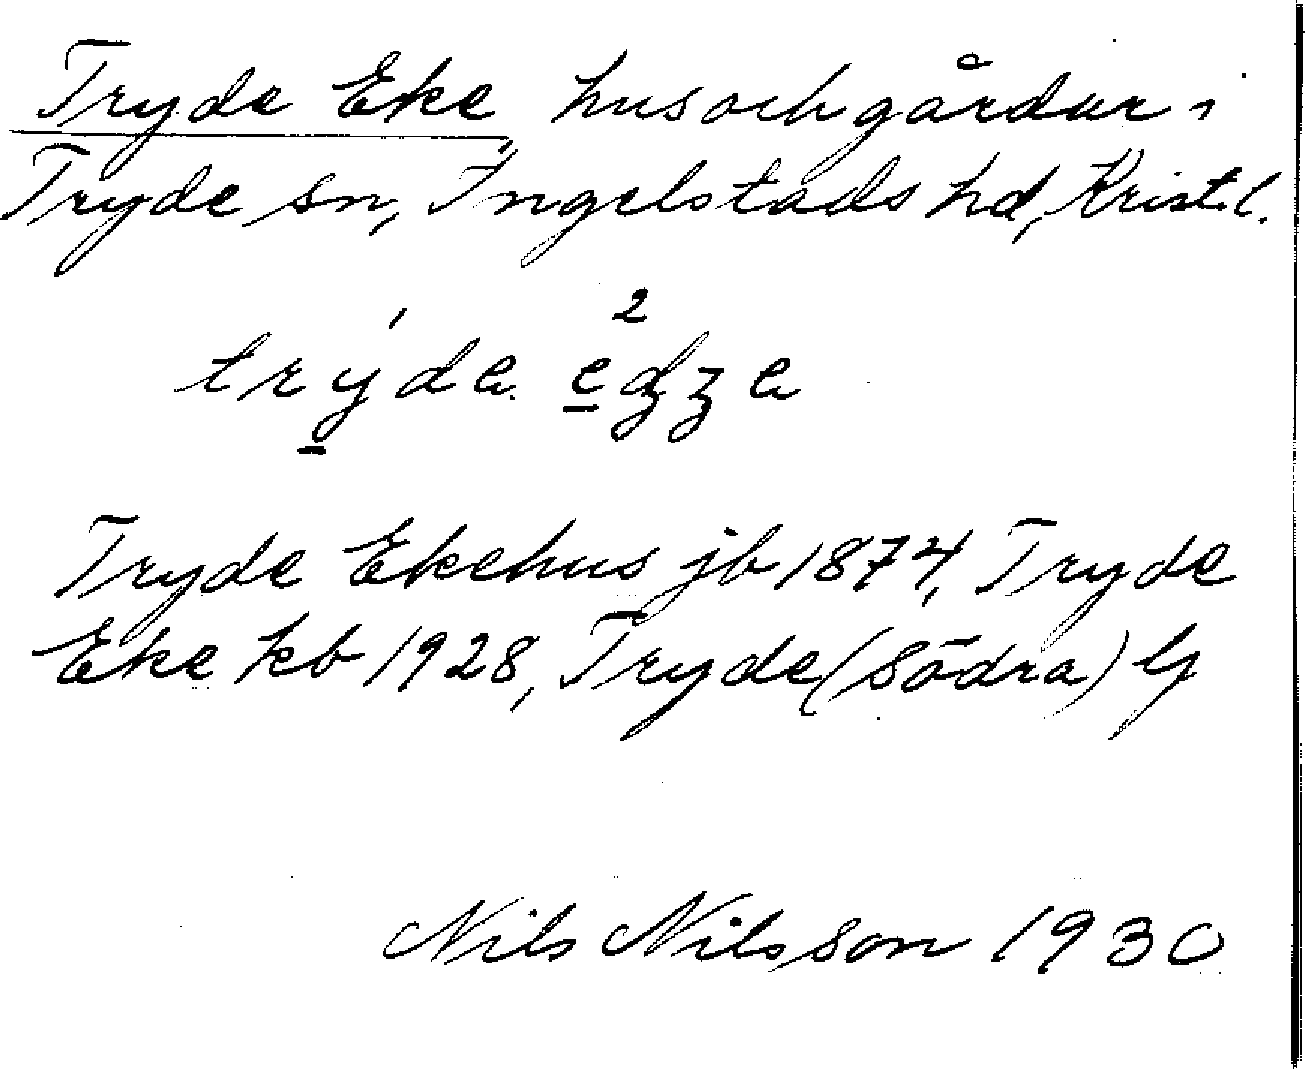 Tryde Eke hus och gårdar i
Tryde sn, Ingelstads hd, Krist.l.
trýde edze
2
Tryde Ekehus jb 1874, Tryde
Eke kb 1928, Tryde (södra) G
Nils Nilsson 1930